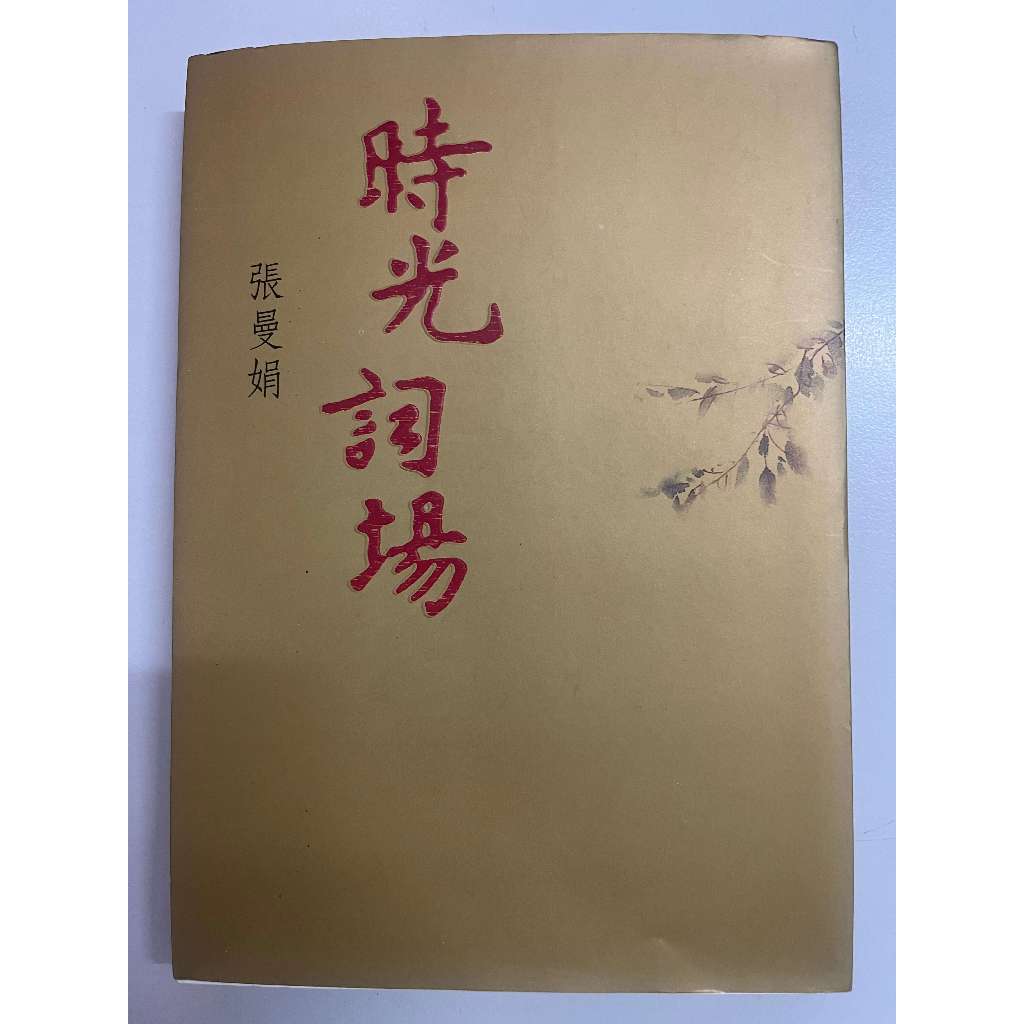 時光詞場
張曼娟